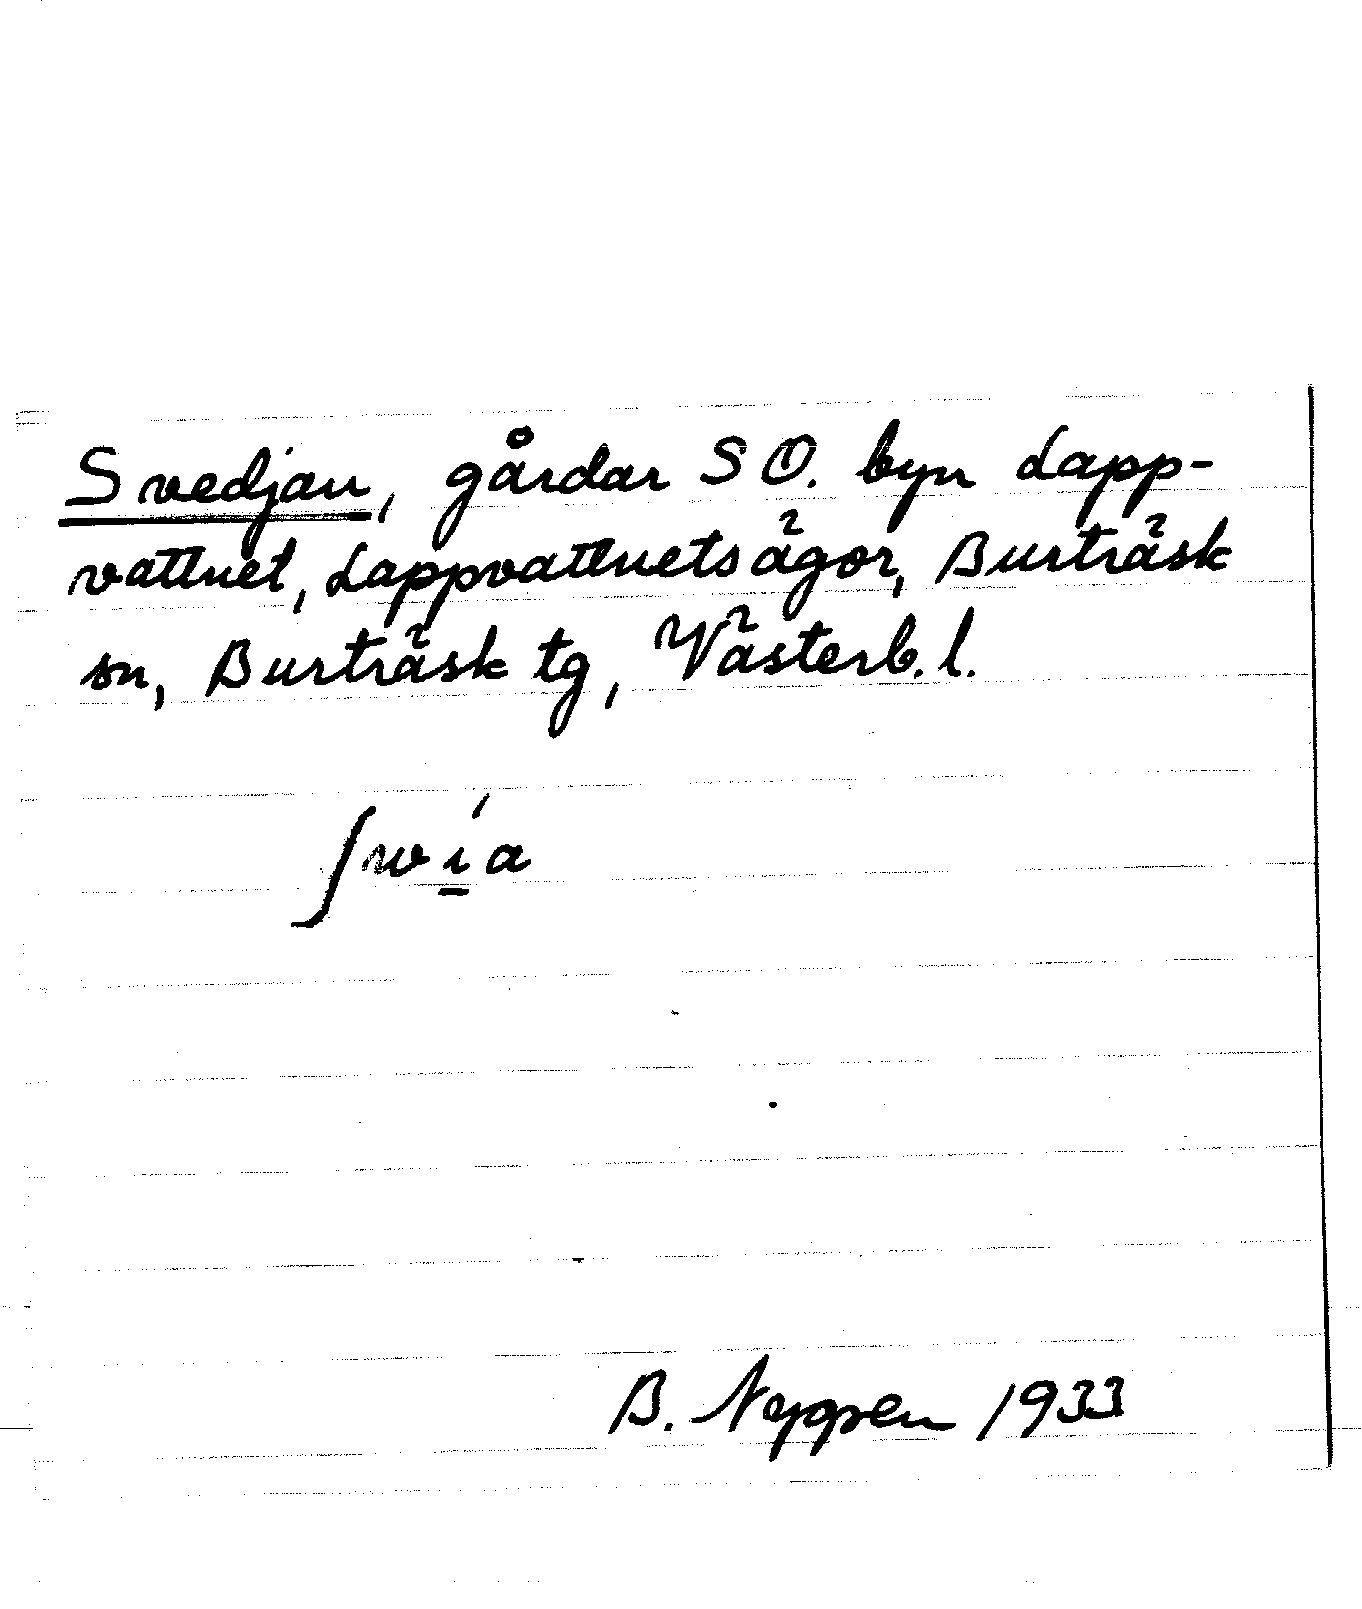 Svedjan, gårdar SO. byn Lapp-
vattnet, Lappvattnets ägor, Burträsk
sn, Burträsk tg, Västerb. l.
ʃwí̱a
B. Nygren 1933